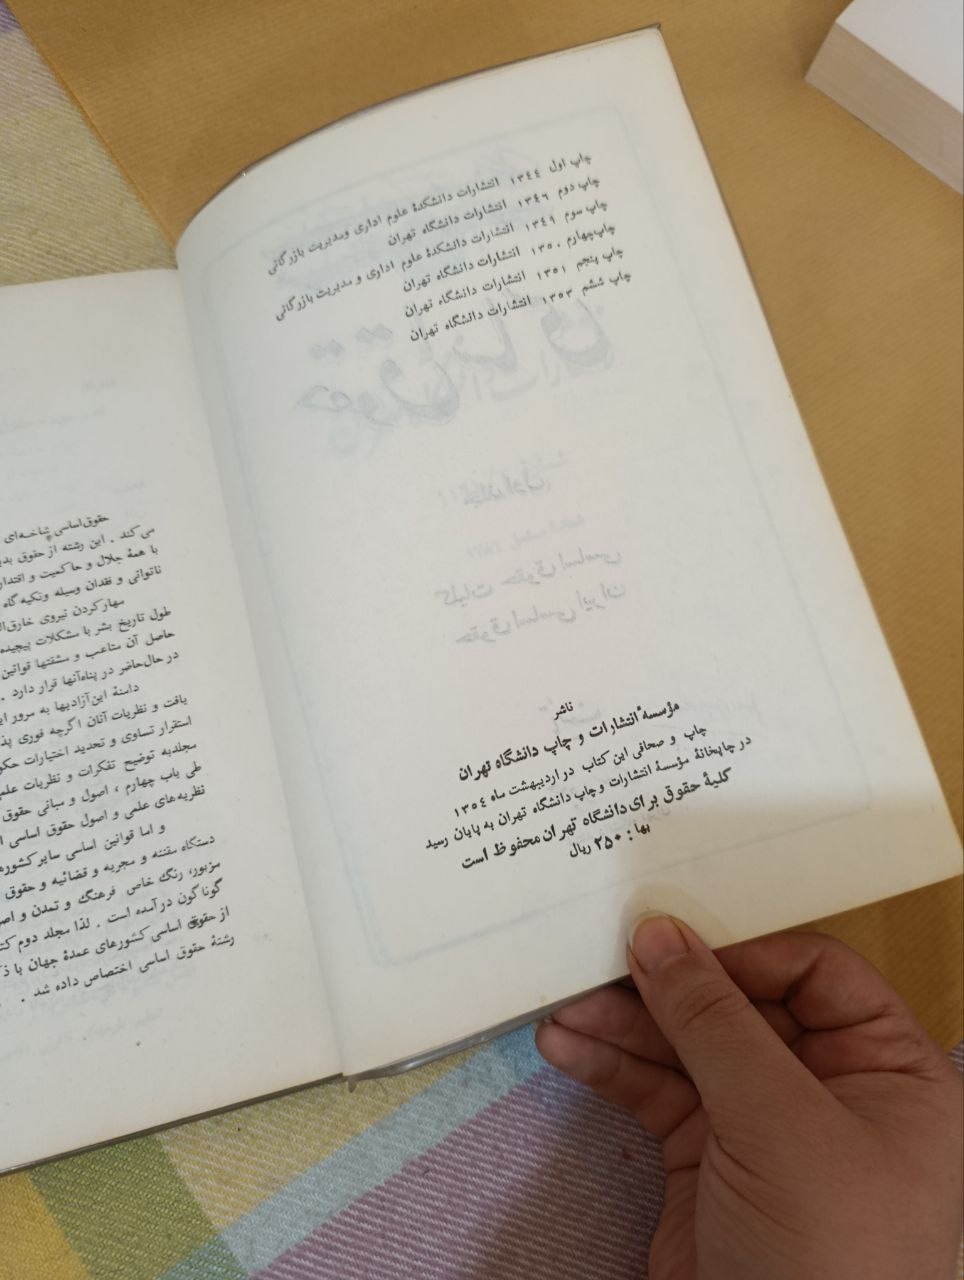 چاپ اول ١٣٤٤ انتشارات دانشکدهٔ علوم اداری ومدیریت بازرگانی
چاپ دوم ١٣٤٦ انتشارات دانشگاه تهران
چاپ سوم ١٣٤٩ انتشارات دانشکدهٔ علوم اداری و مدیریت بازرگانی
چاپ چهارم ١٣٥٠ انتشارات دانشگاه تهران
چاپ پنجم ١٣٥١ انتشارات دانشگاه تهران
چاپ ششم ١٣٥٣ انتشارات دانشگاه تهران
ناشر
مؤسسهٔ انتشارات و چاپ دانشگاه تهران
چاپ و صحافی این کتاب در اردیبهشت ماه ١٣٥٤
در چاپخانهٔ مؤسسهٔ انتشارات و چاپ دانشگاه تهران به پایان رسید
کلیهٔ حقوق برای دانشگاه تهران محفوظ است
بها : ٢٥٠ ریال
حقوق اساسی شاخه‌ای
می کند . این رشته از حقوق
با همهٔ جلال و حاکمیت و
ناتوانی و فقدان وسیله وتکیه گاه
مهارکردن نیروی
طول تاریخ بشر با مشکلات پیچیده
حاصل آن متاعب و مشقتها قوانین
در حال حاضر در پناه آنها قرار دارد .
دامنهٔ این آزادیها به مرور
یافت و نظریات آنان اگرچه فوری
استقرار تساوی و تحدید اختیارات
مجلد به توضیح تفکرات و نظریات
طی باب چهارم ، اصول و مبانی حقوق
نظریه های علمی و اصول حقوق اساسی
و اما قوانین اساسی سایر
دستگاه مقننه و مجریه و قضائیه و حقوق
مزبور، رنگ خاص فرهنگ و تمدن و
گوناگون درآمده است . لذا مجلد دوم
از حقوق اساسی کشورهای عمدهٔ جهان با
رشتهٔ حقوق اساسی اختصاص داده شد .